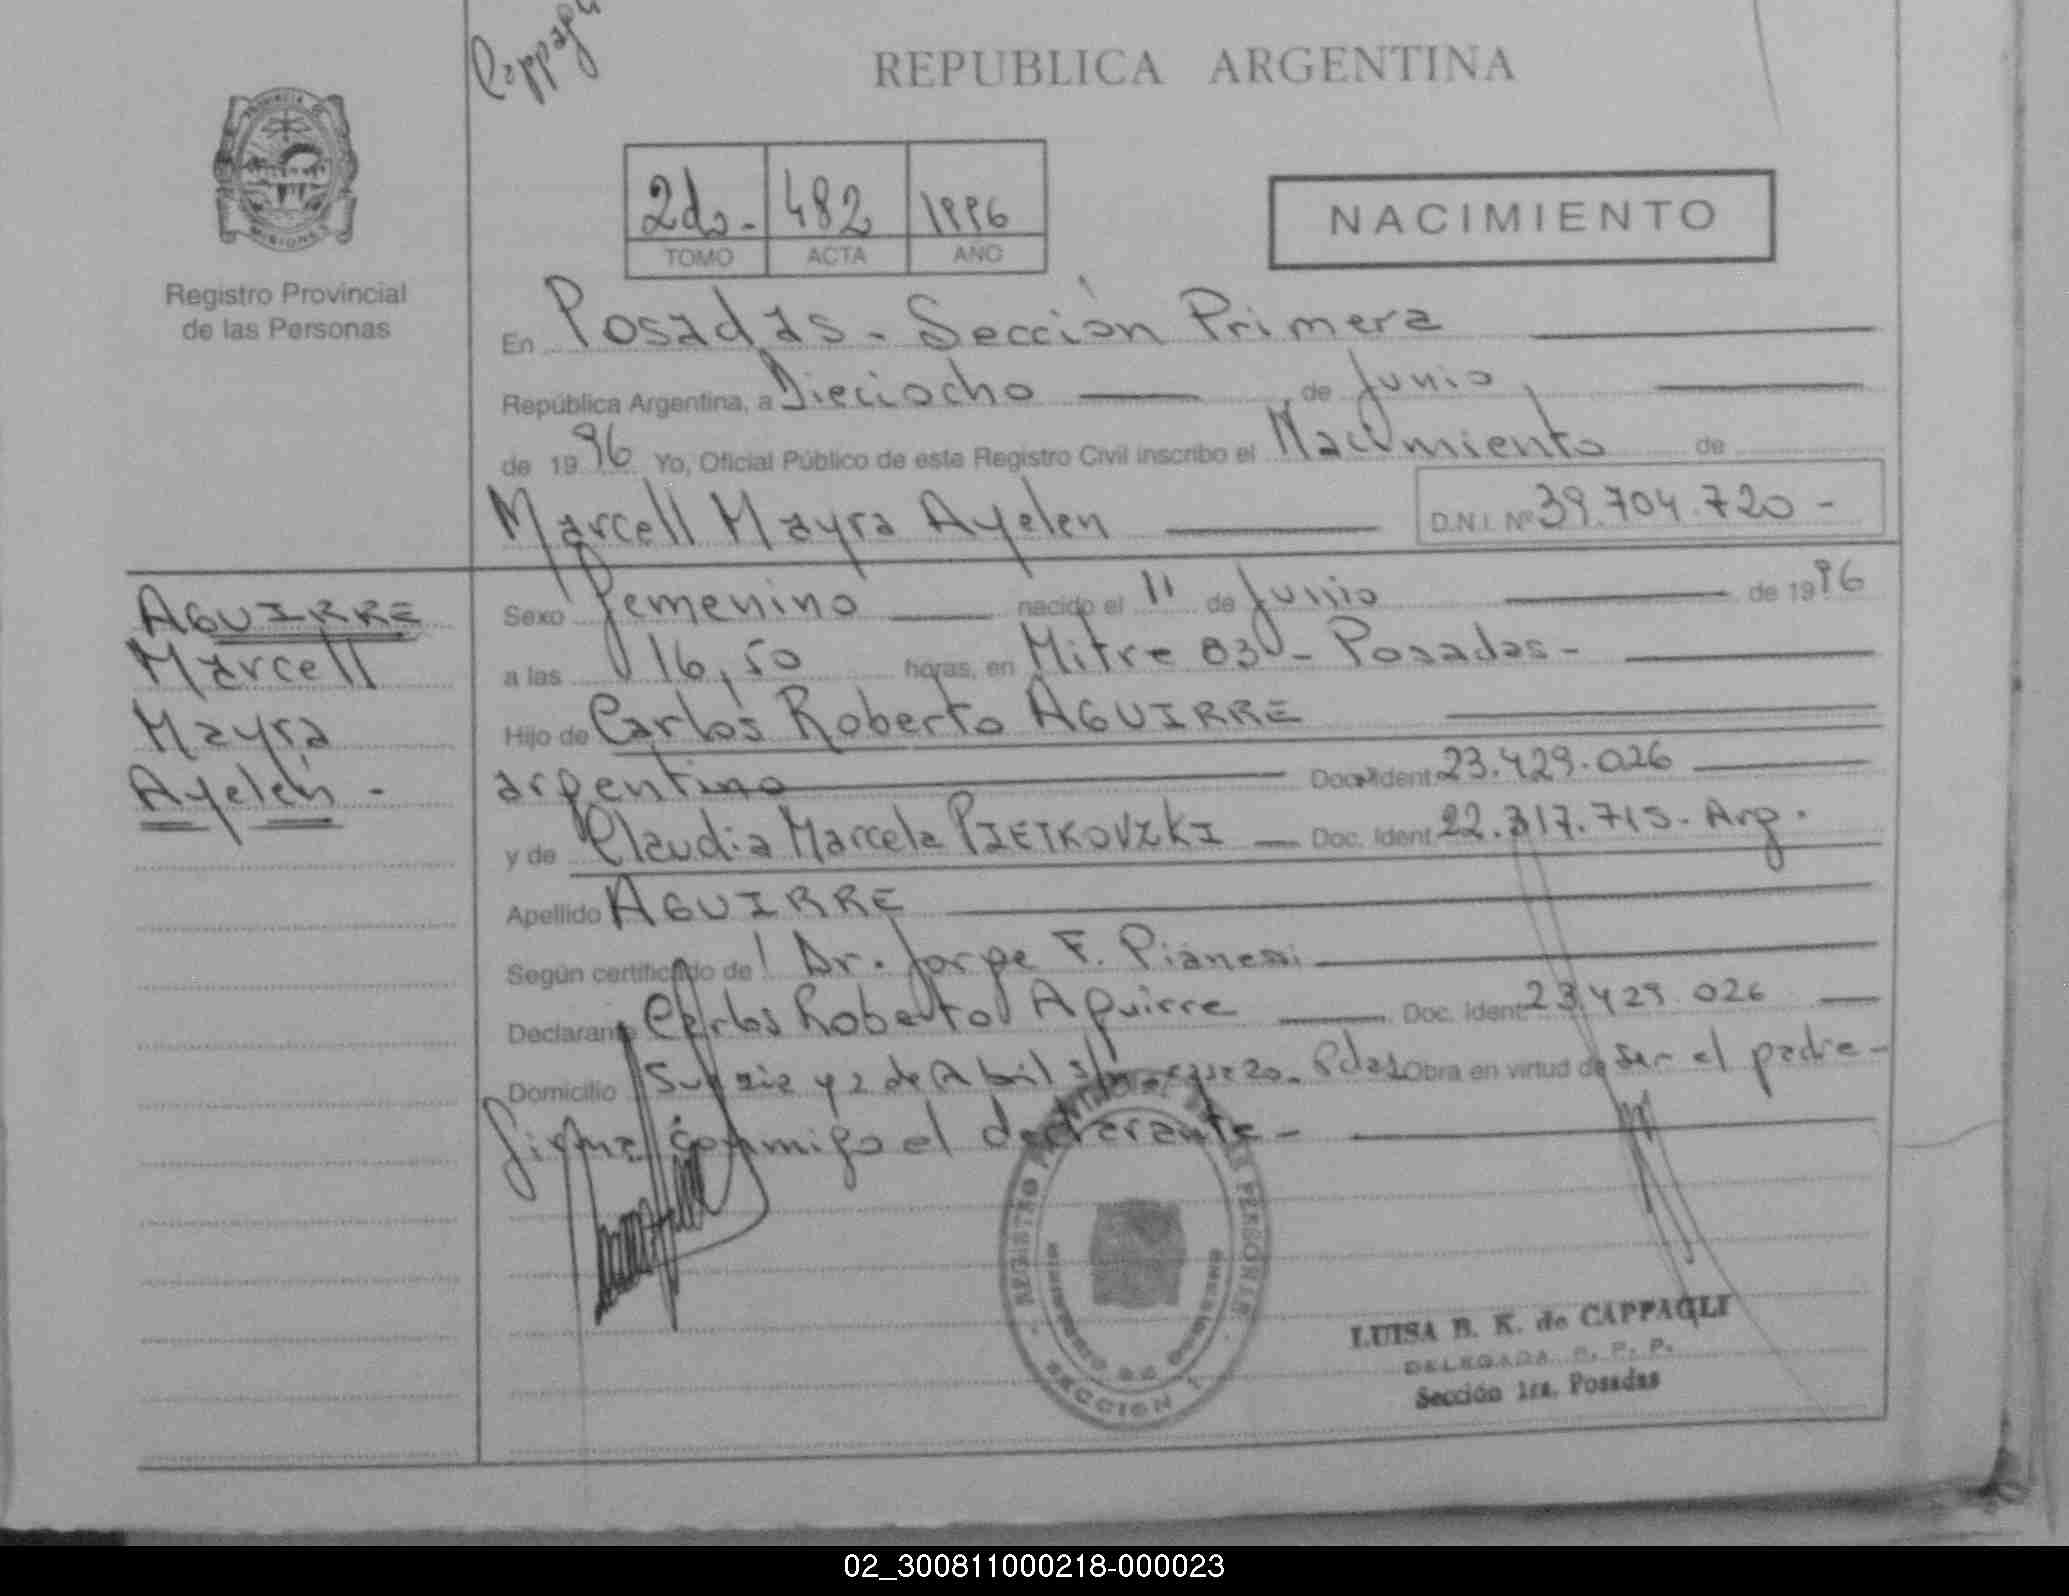 Cappagli
REPUBLICA ARGENTINA
PROVINCIA
MISIONES
Registro Provincial
de las Personas
2do.- 482 1996
TOMO ACTA AÑO
NACIMIENTO
En Posadas - Sección Primera
República Argentina, a Dieciocho de Junio,
de 1996 Yo, Oficial Público de este Registro Civil inscribo el Nacimiento de
Marcell Mayra Ayelen D.N.I. Nº 39.704.720 -
AGUIRRE
Marcell
Mayra
Ayelén -
Sexo femenino nacido el 11 de Junio de 1996
a las 16,50 horas, en Mitre 83 - Posadas -
Hijo de Carlos Roberto AGUIRRE
argentino Doc. Ident. 23.429.026
y de Claudia Marcela PIETKOVZKI Doc. Ident. 22.317.715 - Arg.
Apellido AGUIRRE
Según certificado de Dr. Jorge F. Pianesi
Declarante Carlos Roberto Aguirre Doc. Ident. 23.429.026
Domicilio y 2 de Abril Pdas Obra en virtud de ser el padre -
firma conmigo el declarante -
REGISTRO PROVINCIAL DE LAS PERSONAS
MINISTERIO DE GOBIERNO
SECCION 1
LUISA B. K. de CAPPAGLI
DELEGADA R. P. P.
Sección 1ra. Posadas
02_300811000218-000023